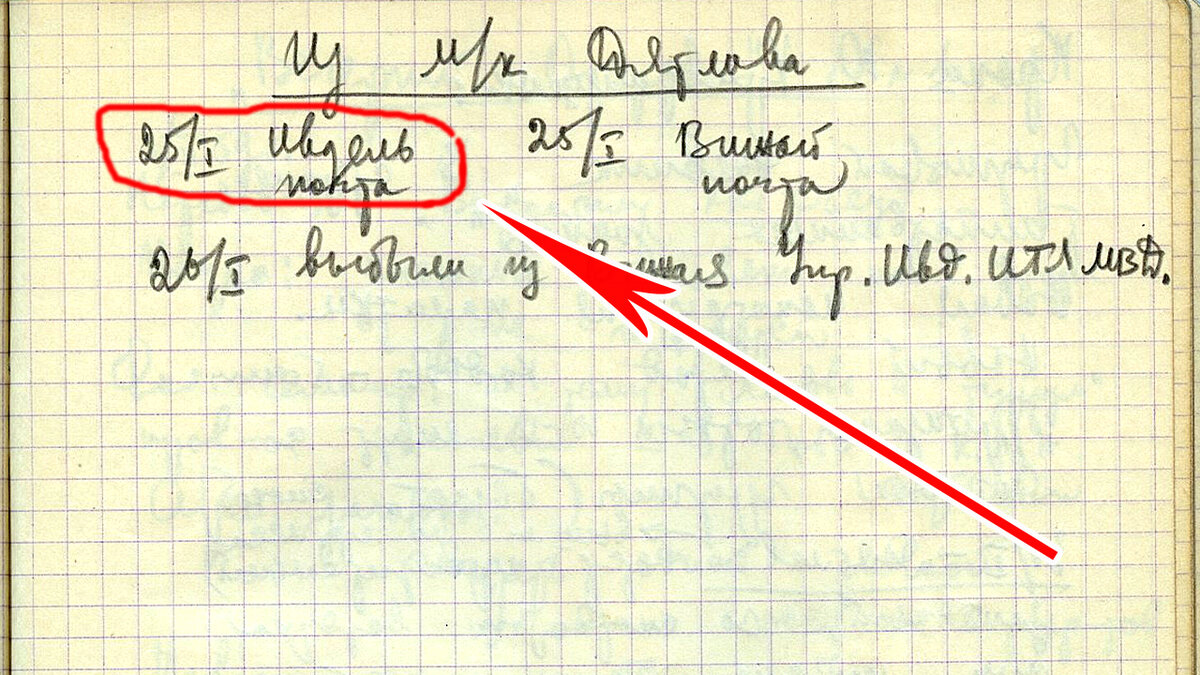 Из м/к Дятлова
25/I Ивдель 25/I Вижай
почта почта
26/I выбыли из Вижая Упр. Ивд. ИТЛ МВД.